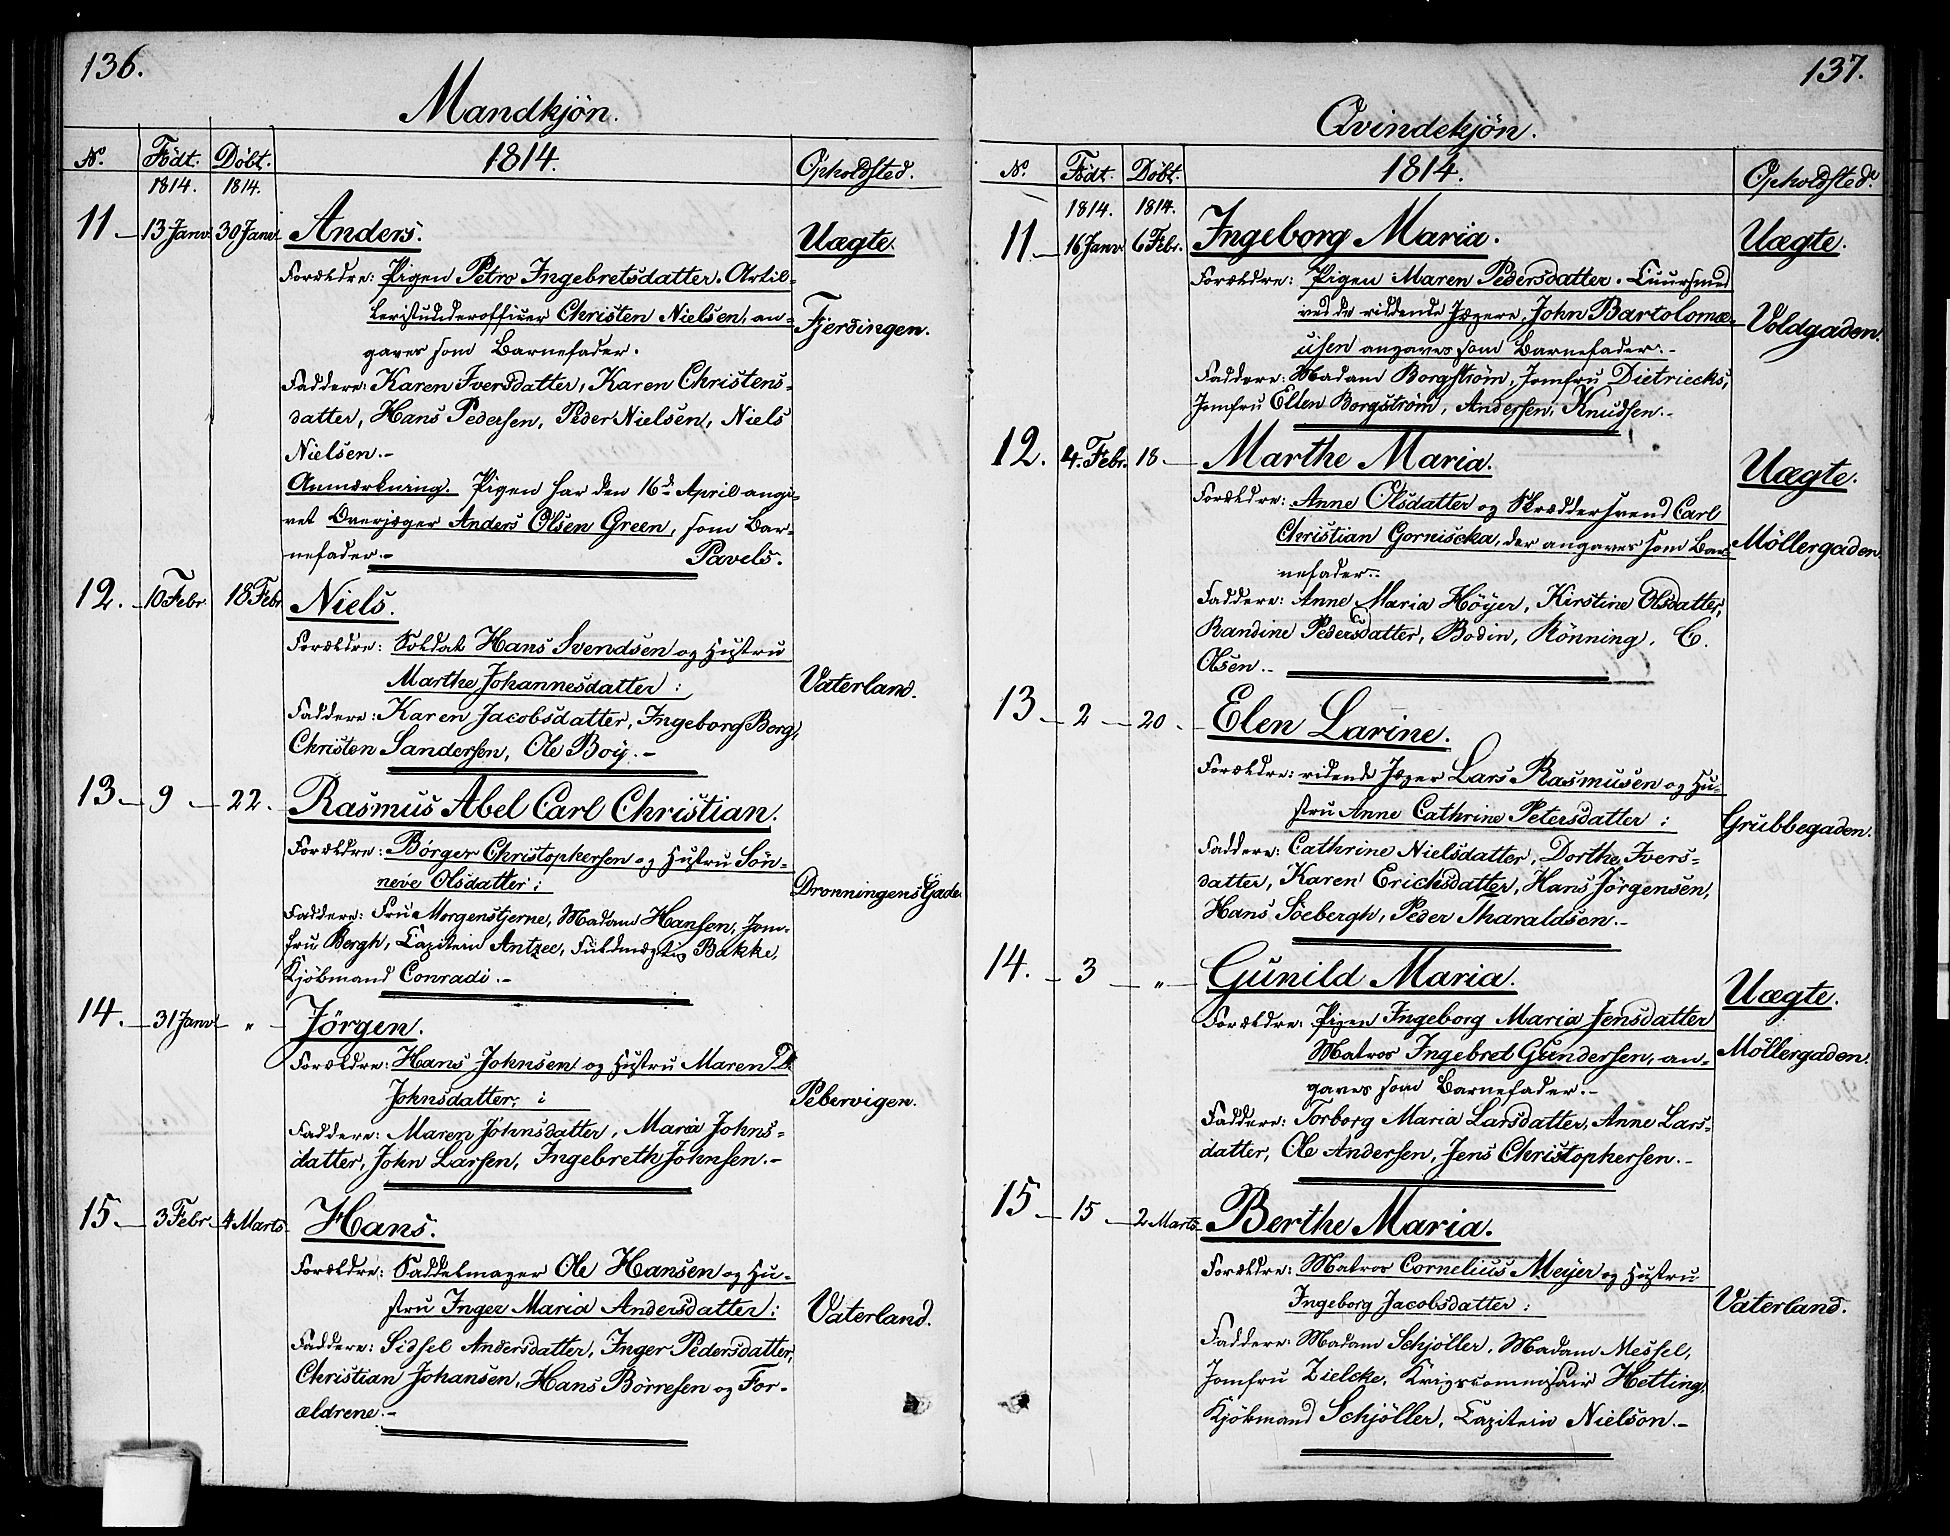 136.
Mandkjön.
No. Födt. Döbt. 1814. Opholdsted.
1814. 1814.
11 13 Janv. 30 Janv. Anders. Uægte.
Forældre: Pigen Petro Ingebretsdatter. Artil-
leriunderofficer Christen Nielsen, an- Fjerdingen.
gaves som Barnefader.
Faddere: Karen Iversdatter, Karen Christens-
datter, Hans Pedersen, Peder Nielsen, Niels
Nielsen.-
Anmærkning. Pigen har den 16de April angi-
vet Overjæger Anders Olsen Green, som Bar-
nefader.- Pavels.
12. 10 Febr. 18 Febr. Niels.
Forældre: Soldat Hans Svendsen og Hustru
Marthe Johannesdatter: Vaterland.
Faddere: Karen Jacobsdatter, Ingeborg Borg,
Christen Sandersen, Ole Boÿ.-
13 9 22. Rasmus Abel Carl Christian.
Forældre: Börger Christophersen og Hustru Sön-
neve Olsdatter: Dronningens Gade.
Faddere: Frue Morgenstjerne, Madam Hansen, Jom-
fru Bergh, Capitein Antzee, Fuldmægtig Bakke,
Kjöbmand Conradi.-
14. 31 Janv. " Jörgen.
Forældre: Hans Johnsen og Hustru Maren D.
Johnsdatter: Pebervigen.
Faddere: Maren Johnsdatter, Maria Johns-
datter, John Larsen, Ingebreth Johnsen.-
15. 3 Febr. 4 Marts Hans.
Forældre: Saddelmager Ole Hansen og Hu-
stru Inger Maria Andersdatter: Vaterland.
Faddere: Sidsel Andersdatter, Inger Pedersdatter,
Christian Johansen, Hans Börresen og For-
ældrene.-
137.
Qvindekjön.
No. Födt. Döbt. 1814. Opholdsted.
1814. 1814.
11 16 Janv. 6 Febr. Ingeborg Maria. Uægte.
Forældre: Pigen Maren Pedersdatter. Cuursmed
ved de riddende Jægere, John Bartolomæ- Voldgaden.
usen angaves som Barnefader.-
Faddere: Madam Borgström, Jomfru Dietriecks,
Jomfru Ellen Borgström, Andersen, Knudsen.-
12. 4. Febr. 18 Marthe Maria. Uægte.
Forældre: Anne Olsdatter og Skræddersvend Carl
Christian Gornischa, der angaves som Bar- Möllergaden
nefader.-
Faddere: Anne Maria Höÿer, Kirstine Olsdatter,
Randine Pedersdatter, Bodin, Rönning, C.
Olsen.-
13 2 20 Elen Larine.
Forældre: ridende Jæger Lars Rasmusen og Hu-
stru Anne Cathrine Petersdatter: Grubbegaden.
Faddere: Cathrine Nielsdatter, Dorthe Ivers-
datter, Karen Ericksdatter, Hans Jörgensen,
Hans Söebergh, Peder Tharaldsen.-
14. 3 " Gunild Maria. Uægte.
Forældre: Pigen Ingeborg Maria Jensdatter
Matros Ingebret Gundersen, an- Möllergaden.
gaves som Barnefader.-
Faddere: Torborg Maria Larsdatter, Anne Lars-
datter, Ole Andersen, Jens Christophersen.-
15 15 2 Marts Berthe Maria.
Forældre: Matros Cornelius Meÿer og Hustru
Ingeborg Jacobsdatter: Vaterland.
Faddere: Madam Schjöller, Madam Messel,
Jomfru Zielcke, Krigscommisair Hetting,
Kjöbmand Schjöller, Capitein Nielson.-